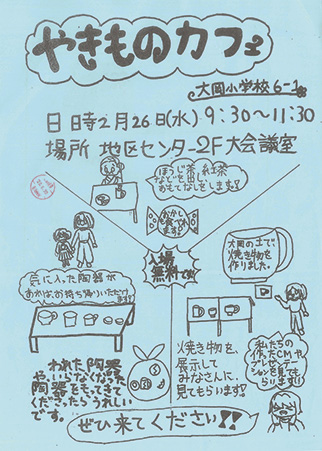 やきものカフェ
大岡小学校6-1
日時2月26日(水)9:30~11:30
場所 地区センター2F大会議室
ほうじ茶、紅茶
などを出し、
おもてなしをします!
おかし
も食べれ
ます!
大岡の土で
焼き物を
作りました。
気に入った陶器が
あれば、お持ち帰りいただけ
ます!
入場
無料です。
われた陶器
やいらなくなった
陶器をもってきて
くださったらうれしい
です。
焼き物を、
展示して
みなさんに、
見てもらいます!
私たちの
作ったCMや
プレゼンテー
ションを見ても
らいます!
ぜひ来てください!!